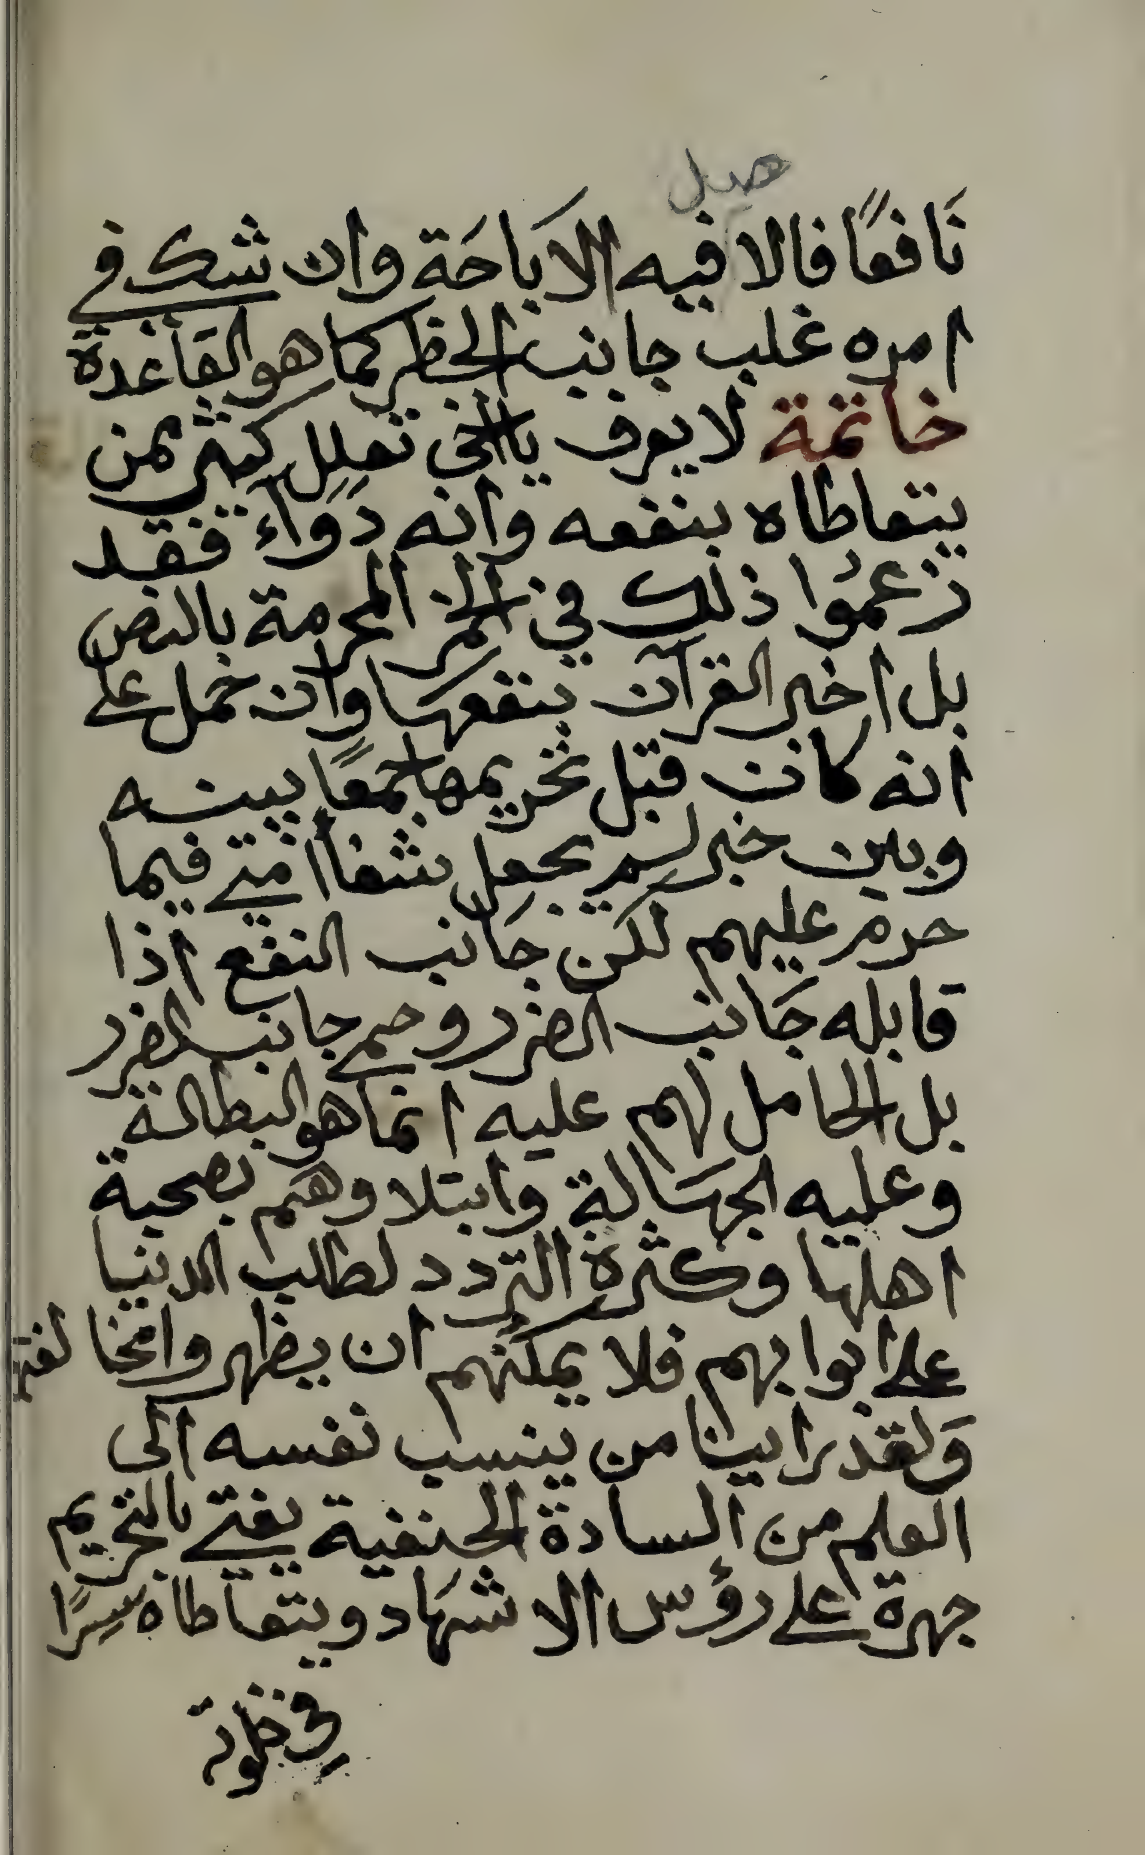 صل
نَافعًا فالا فيه الاَباحَة وان شك في
امره غلب جانب الحظر كما هو القاعدة
خاتمة لا يعرف يا اخى تعلل كثير ممن
يتعاطاه بنفعه وانه دَوَاء فقد
زعمُوا ذلك في الخمر المحرمة بالنص
بل اخبر القرآن بنفعها وان حمل على
انه كان قبل تحريمها جمعًا بينه
وبين خبر لم يجعل شفا امتي فيما
حرم عليهم لكن جَانب النفع اذا
قابله جَانب الضرر وحمى جانب الضرر
بل الحامل لهم عليه انما هو البطالة
وعليه الجهَالة وابتلاوهم بصحبة
اهلها وكثرة التردد لطلب الدنيا
على ابوابهم فلا يمكنهم ان يظهروا مخالفتهم
وَلقد راينا من ينسب نفسه الى
العلم من السادة الحنفية يفتي بالتحريم
جهرة على رؤس الاشهَاد ويتعاطاه سِرًا
في خلوته